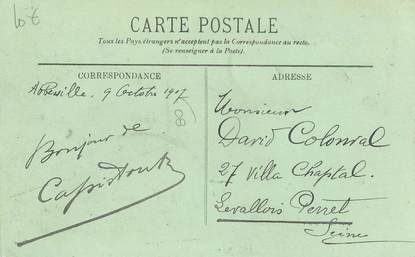 10 €
CARTE POSTALE
Tous les Pays étrangers n'acceptent pas la Correspondance au recto.
(Se renseigner à la Poste).
CORRESPONDANCE
Abbeville, 9 Octobre 1907
80
Bonjour de
ADRESSE
Monsieur
David Colonval
27 Villa Chaptal
Levallois Perret
Seine